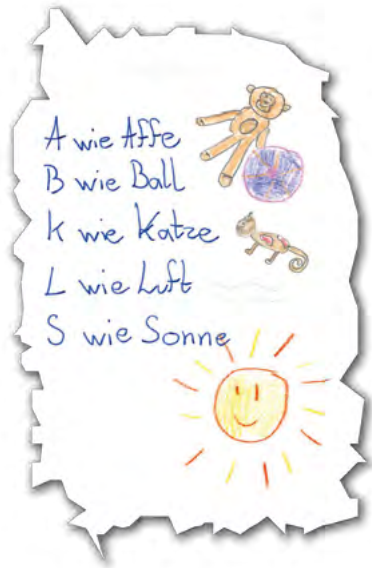 A wie Affe
B wie Ball
K wie Katze
L wie Luft
S wie Sonne